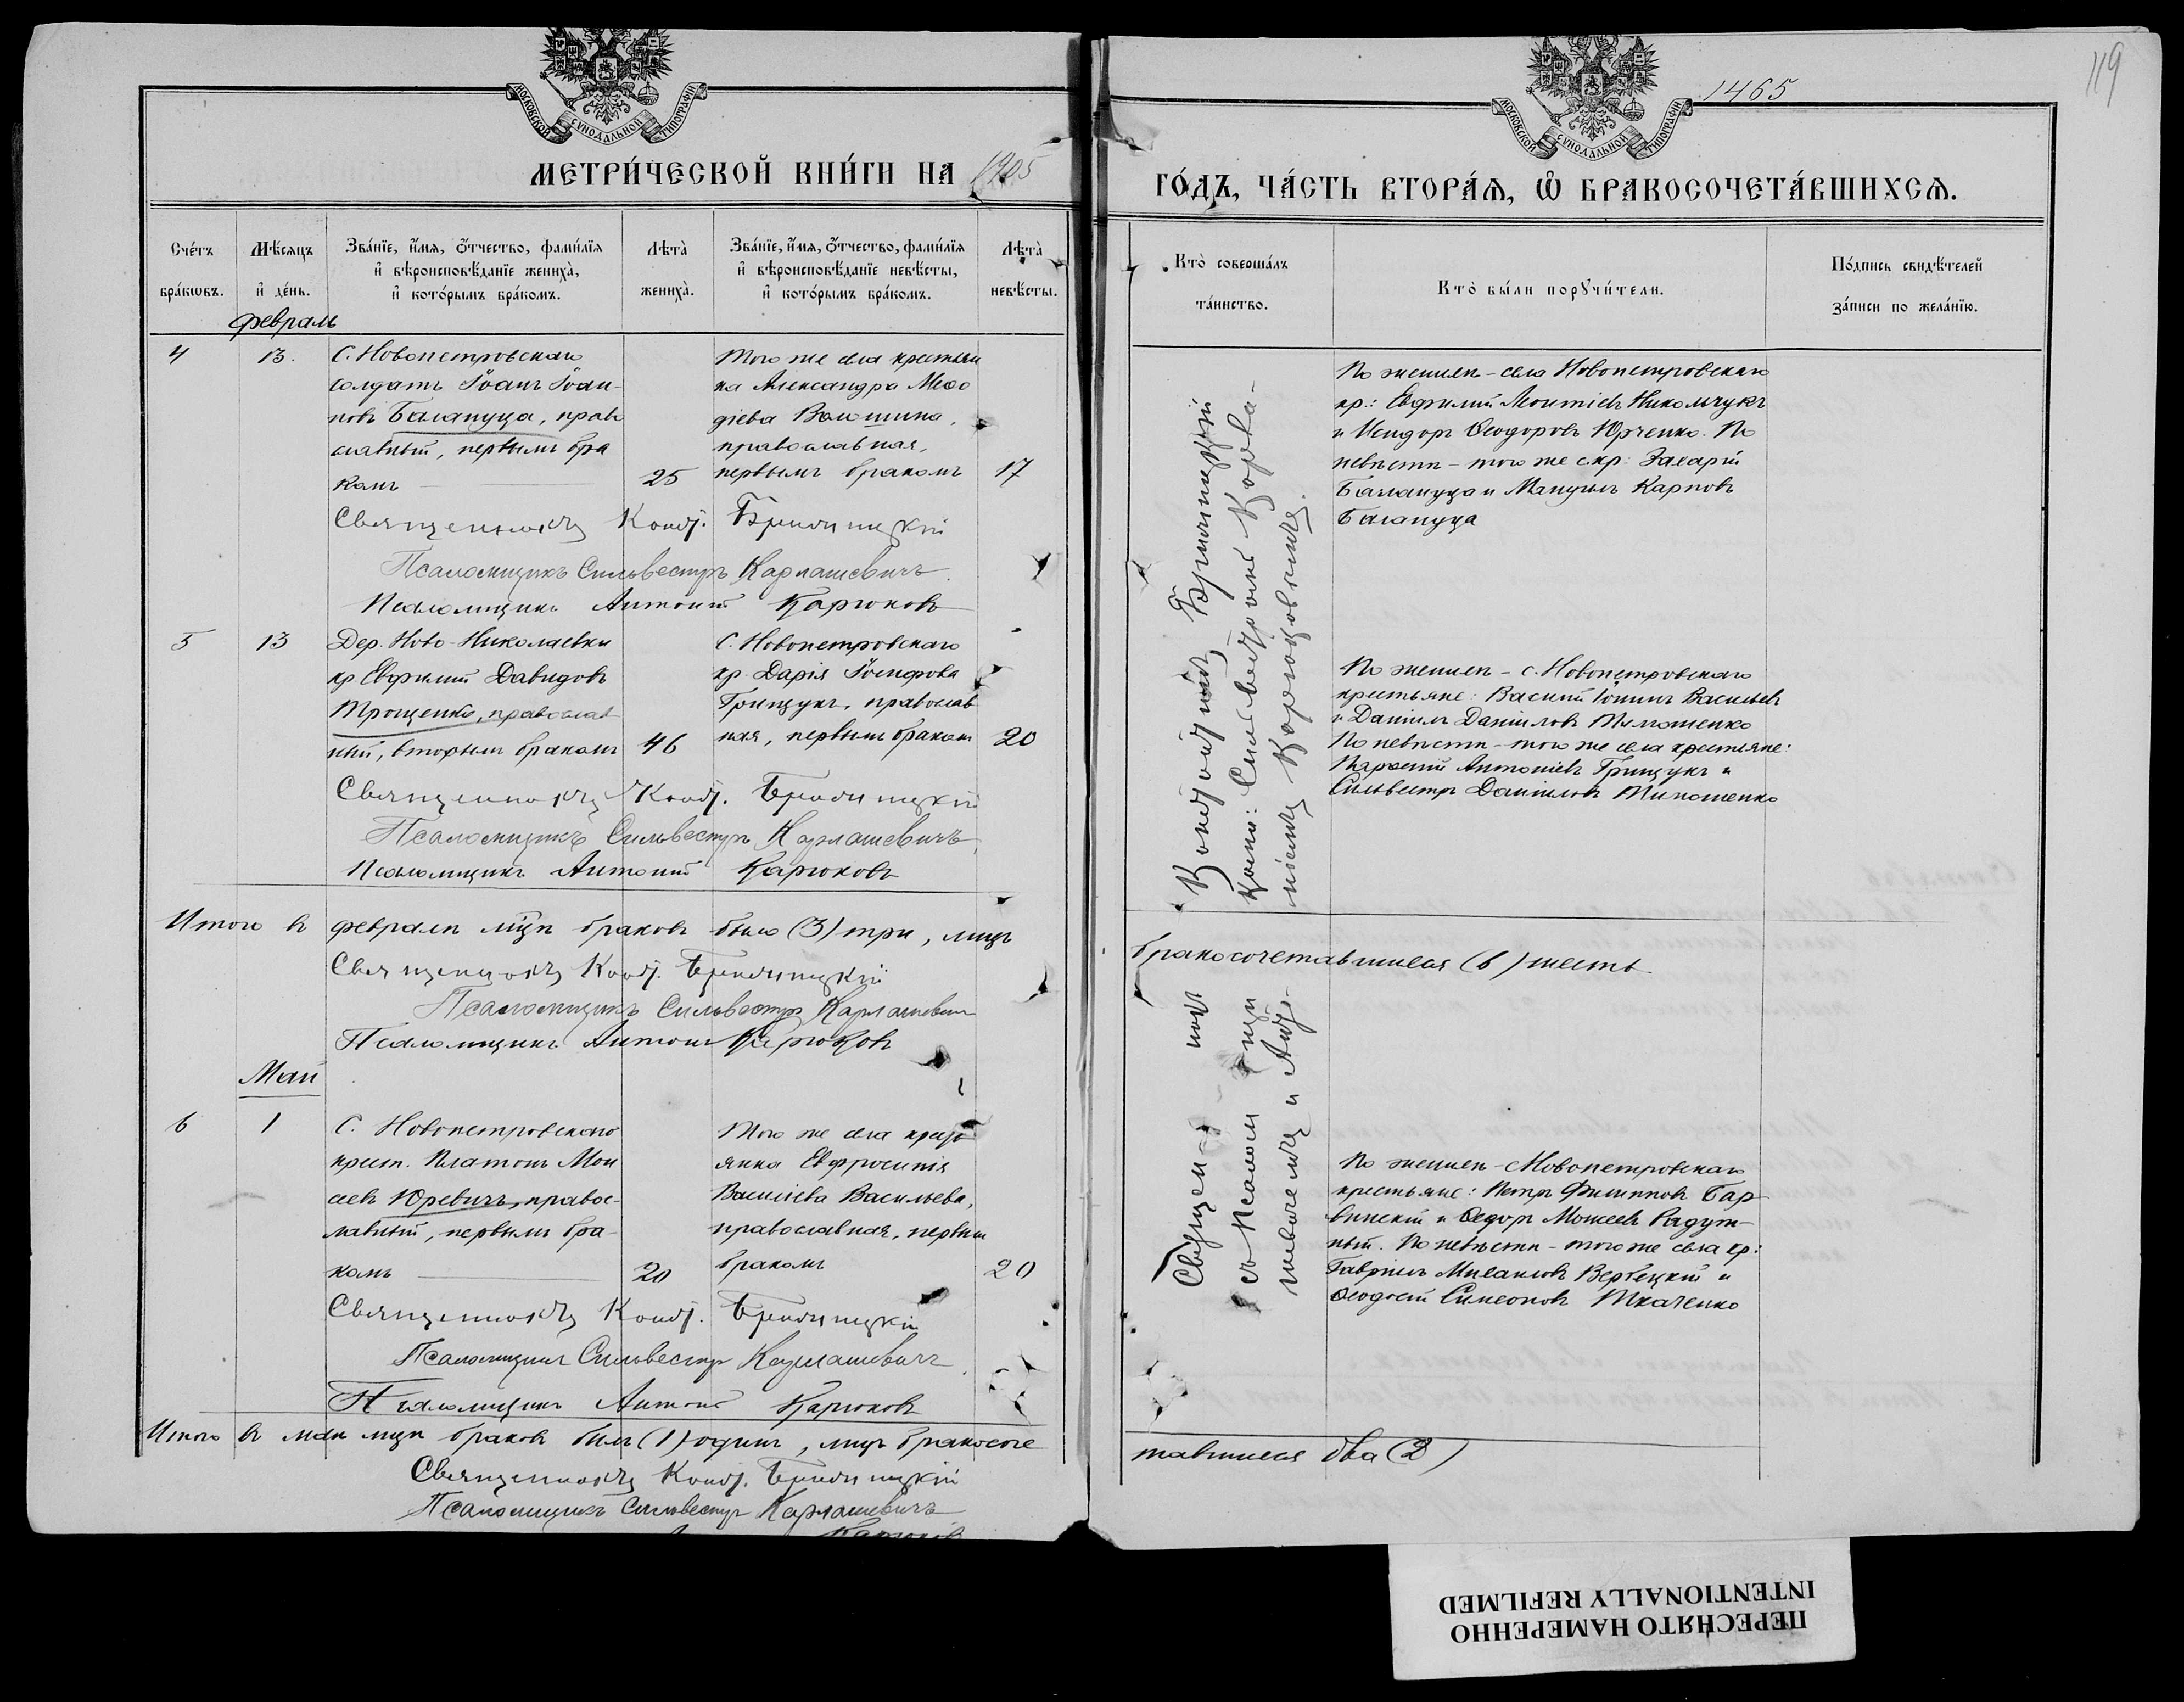 119
1465
МОСКОВСКОЙ СѴНОДАЛЬНОЙ ТИПОГРАФІИ
МОСКОВСКОЙ СѴНОДАЛЬНОЙ ТИПОГРАФІИ
МЕТРИ́ЧЕСКОЙ КНИ́ГИ НА 1905
ГО́ДЪ, ЧА́СТЬ ВТОРА́Ѧ, Ѡ҆ БРАКОСОЧЕТА́ВШИХСѦ.
Сче́тъ бра́ковъ.
Мѣсяцъ и де́нь.
Зва́нїе, и҆́мя, о҆́тчество, фами́лїя
и҆ вѣроисповѣ́данїе жениха̀,
и҆ кото́рымъ бра́комъ.
Лѣта̀ жениха̀.
Зва́нїе, и҆́мя, о҆́тчество, фами́лїя
и҆ вѣроисповѣ́данїе невѣ́сты,
и҆ кото́рымъ бра́комъ.
Лѣта̀ невѣ́сты.
Кто̀ соверша́лъ
та́инство.
Кто̀ бы́ли порꙋчи́тели.
По́дпись свидѣ́телей
за́писи по жела́нїю.
Февраль
4
13.
С. Новопетровскаго
солдатъ Іоанъ Іоан-
новъ Балануца, право
славный, первымъ бра
комъ
25
Того же села крестьян
ка Александра Меѳо
діева Волошина,
православная,
первымъ бракомъ
17
По женихѣ - села Новопетровскаго
кр.: Евфимій Никольчукъ
и Исидоръ Ѳеодоровъ Юрченко. По
невѣстѣ - того же с. кр: Захарій
Балануца и Мануилъ Карповъ
Балануца
Священникъ Конд. Бриницкій
Псаломщикъ Сильвестръ Карлашевичъ
Псаломщикъ Антоній Карюковъ
5
13
Дер. Ново-Николаевки
кр Евфимій Давидовъ
Трощенко, православ
ный, вторымъ бракомъ
46
С. Новопетровскаго
кр. Дарія Іосифова
Грищукъ, православ
ная, первымъ бракомъ
20
По женихѣ - с. Новопетровскаго
крестьяне: Василій Васильевъ
и Даніилъ Даниловъ Тимошенко
По невѣстѣ - того же села крестьяне:
Антоніевъ Грищукъ и
Сильвестръ Даниловъ Тимошенко
Священникъ Конд. Бриницкій
Псаломщикъ Сильвестръ Карлашевичъ
Псаломщикъ Антоній Карюковъ
Итого въ февралѣ мцѣ браковъ было (3) три, лицъ
бракосочетавшихся (6) шесть
Священникъ Конд. Бриницкій
Псаломщикъ Сильвестръ Карлашевичъ
Псаломщикъ Антоній Карюковъ
Май
6
1
С. Новопетровскаго
крест. Платонъ Мои
сеевъ Юревичъ, правос-
лавный, первымъ бра-
комъ
20
Того же села кресть
янка Евфросинія
Василіева Васильева,
православная, первым
бракомъ
20
По женихѣ - с Новопетровскаго
крестьяне: Петръ Филипповъ Бар-
винскій и Ѳедоръ Моисеевъ Радут-
ный. По невѣстѣ - того же села кр:
Гавріилъ Михаиловъ Вербецкій и
Ѳеодосій Симеоновъ Ткаченко
Священникъ Конд. Бриницкій
Псаломщикъ Сильвестръ Карлашевичъ
Псаломщикъ Антоній Карюковъ
Итого въ маѣ мцѣ браковъ былъ (1) одинъ, лицъ бракосоче
тавшихся два (2)
Священникъ Конд. Бриницкій
Псаломщикъ Сильвестръ Карлашевичъ
Карюковъ
ПЕРЕСНЯТО НАМЕРЕННО
INTENTIONALLY REFILMED